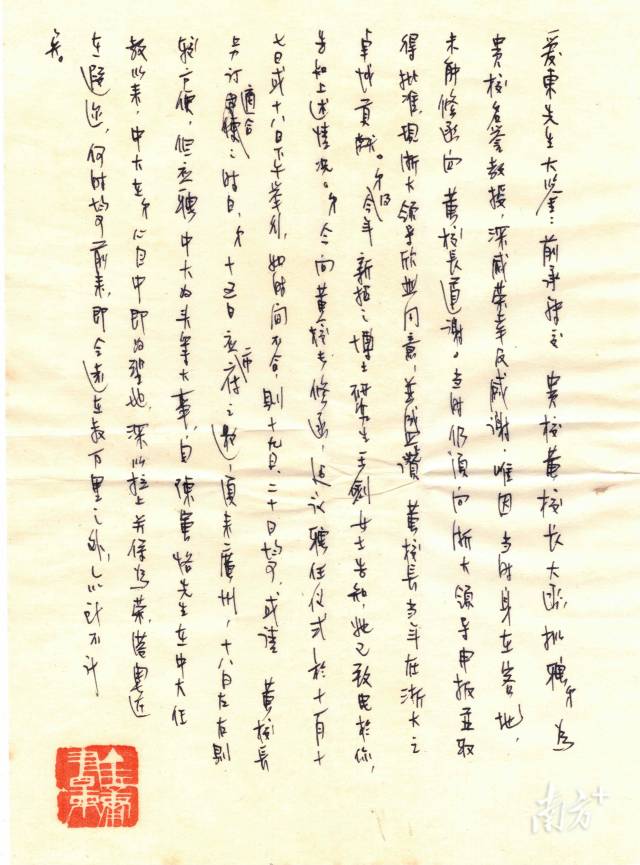 爱東先生大鉴：前承转交 貴校黄校长大函，拟聘弟为
貴校名誉教授，深感荣幸及感谢，唯因当时身在客地，
未能修函向 黄校長道谢。当时仍须向浙大领导申报並取
得批准，现浙大领导欣然同意，並盛讚 黄校長当年在浙大之
卓越貢献。弟今年新招之博士研究生王剑女士告知，她已致电於你，
告知上述情况。弟今向黄校长修函，建议聘任仪式於十一月十
七日或十八日下午举行，如时间不合，則十九日、二十日均可，或请 黄校長
另订適合之时日，弟十五日应市府之邀，须来廣州，十八日左右則
较方便，但应聘中大为头等大事，自陳寅恪先生在中大任
教以来，中大在弟心目中即为聖地，深以拉上关係为荣，港粤近
在，何时均可前来，即令遠在数万里之外，不计
矣。
南方+